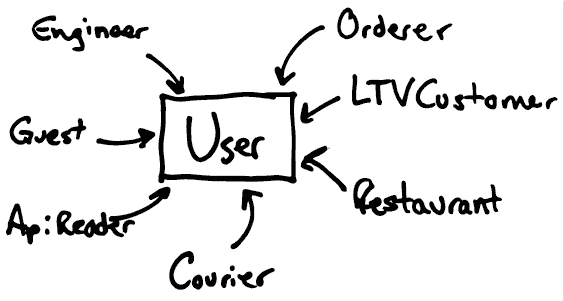 Engineer
Orderer
LTVCustomer
Guest
User
Restaurant
ApiReader
Courier